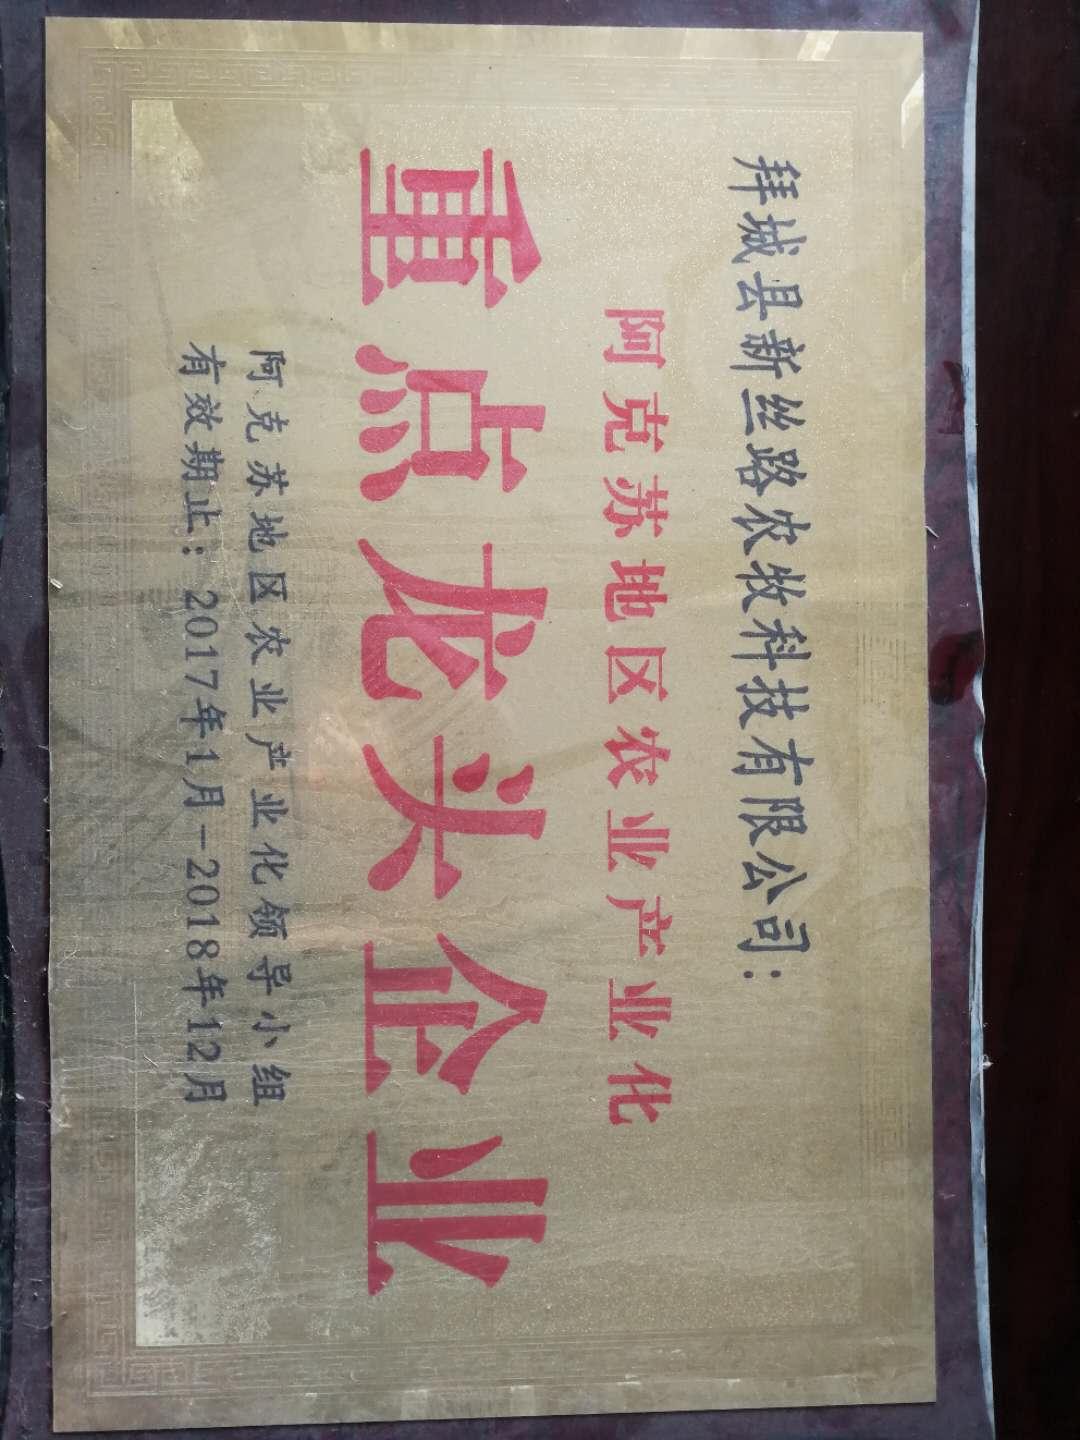 拜城县新丝路农牧科技有限公司：
阿克苏地区农业产业化
重点龙头企业
阿克苏地区农业产业化领导小组
有效期止：2017年1月-2018年12月